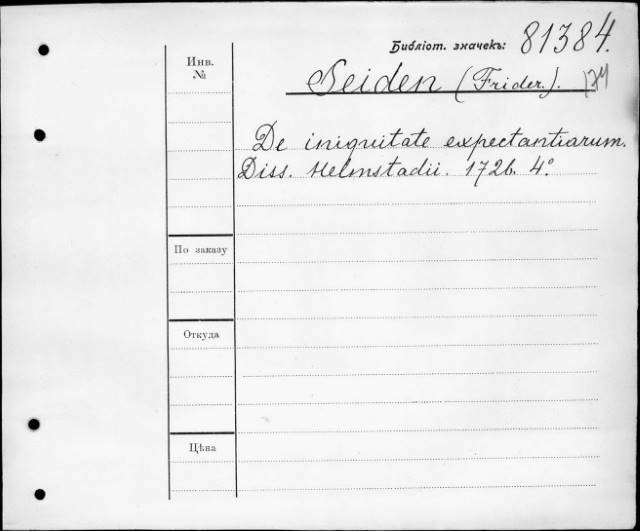 Библіот. значекъ: 81384.
Инв. №
Seiden (Frider.).
De iniquitate expectantiarum.
Diss. Helmstadii. 1726. 4°
По заказу
Откуда
Цѣна